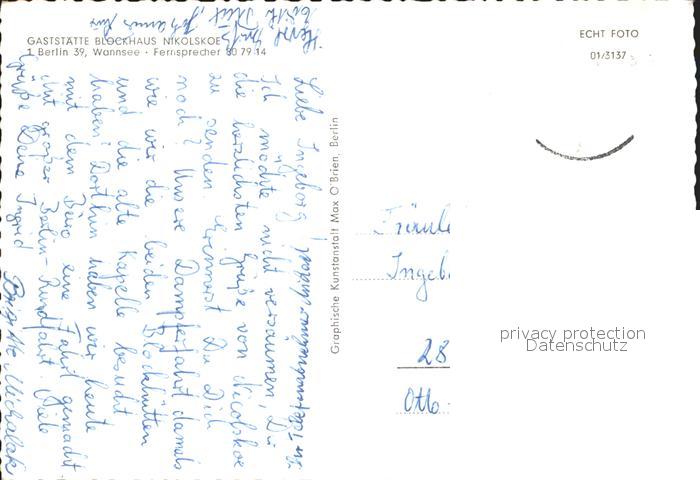 GASTSTÄTTE BLOCKHAUS NIKOLSKOE
1 Berlin 39, Wannsee · Fernsprecher 80 79 14
ECHT FOTO
01/3137
Graphische Kunstanstalt Max O'Brien, Berlin
Liebe Ingeborg!
Ich möchte nicht versäumen, Dir
die herzlichsten Grüße von Nicolskoe
zu senden. Erinnerst Du Dich
noch? Unsere Dampferfahrt damals
wie wir die beiden Blockhütten
und die alte Kapelle besucht
haben? Dorthin haben wir heute
mit dem Büro eine Fahrt gemacht
mit großer Berlin-Rundfahrt. Viele
Grüße Deine Ingrid
Fräule
Ingeb
28
Otto
privacy protection
Datenschutz